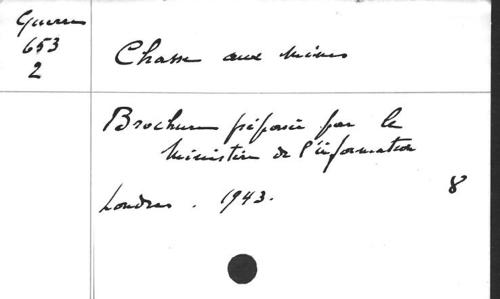 Guerre
653
2
Chasse aux mines
Brochure préparée par le
Ministère de l'information
Londres. 1943.
8